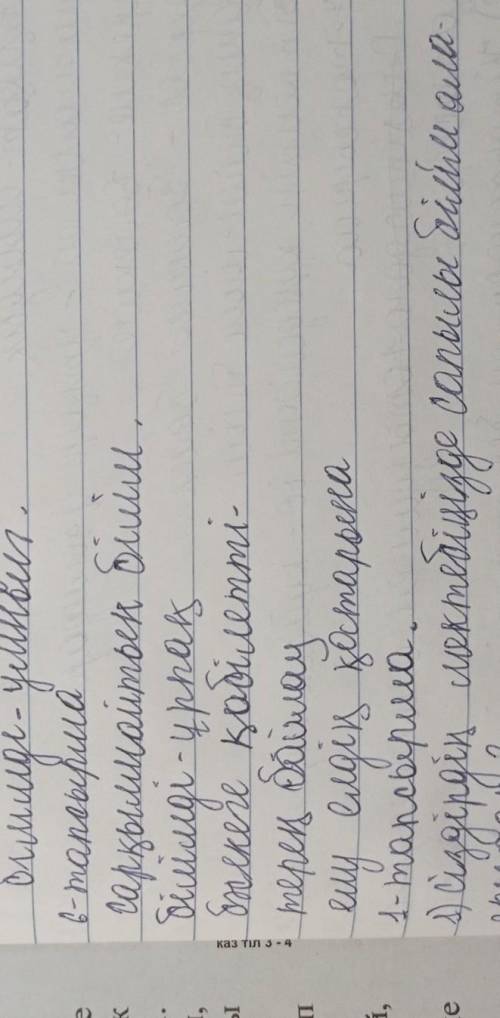 білімді - умный.
6-тапсырма
сарқылмайтын білім,
білімді - ұрпақ
өнкеге қабілетті-
терең байлау
ену елдің қастарына
1-тапсырма.
1) Сіздердің мектебіңізде сапалы білім ала-
каз тіл 3 - 4